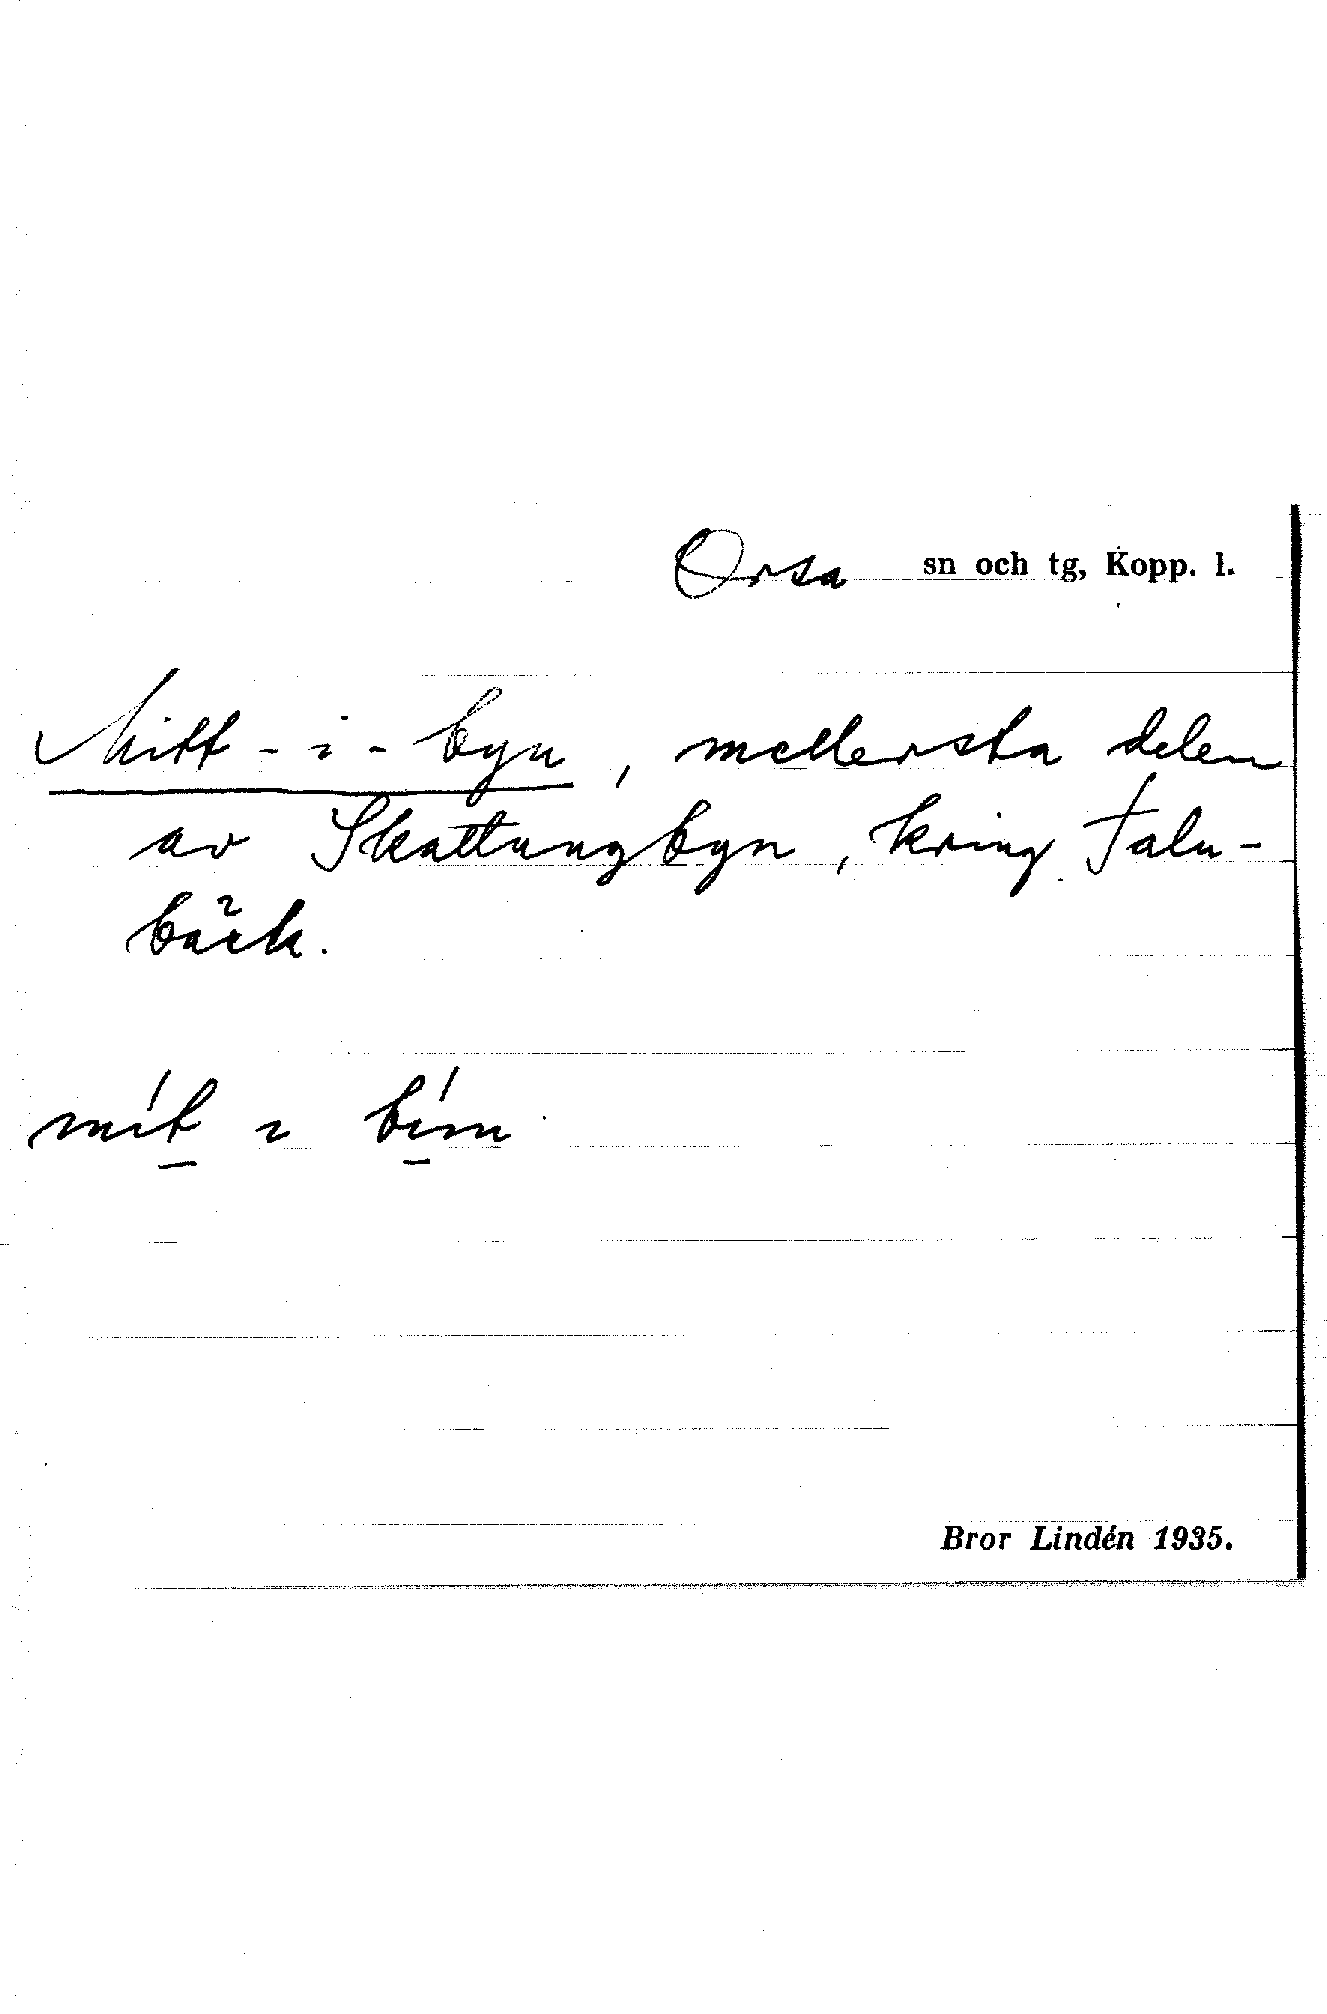 Orsa sn och tg, Kopp. l.
Mitt-i-byn, mellersta delen
av Skattungbyn, kring Talu-
bäck.
mít̲ ı bí̲m
Bror Lindén 1935.